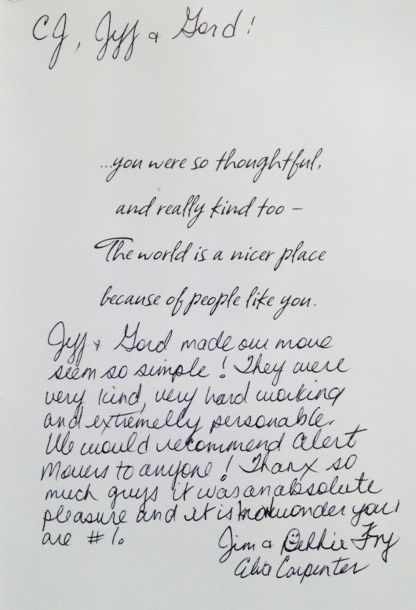 CJ, Jeff & Gord!
...you were so thoughtful,
and really kind too –
The world is a nicer place
because of people like you.
Jeff & Gord made our move
seem so simple! They were
very kind, very hard working
and extremelly personable.
We would recommend Alert
Movers to anyone! Thanx so
much guys it was an absolute
pleasure and it is no wonder you
are #1.
Jim & Debbie Fry
aka Carpenter